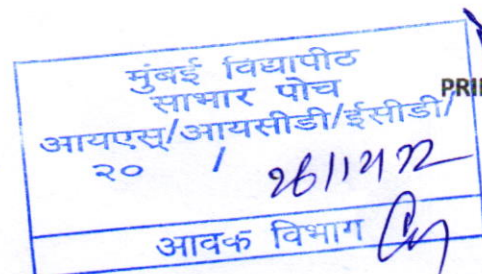 मुंबई विद्यापीठ
साभार पोच
PRI
आयएस्/आयसीडी/ईसीडी/
२० /
26/12/22
आवक विभाग